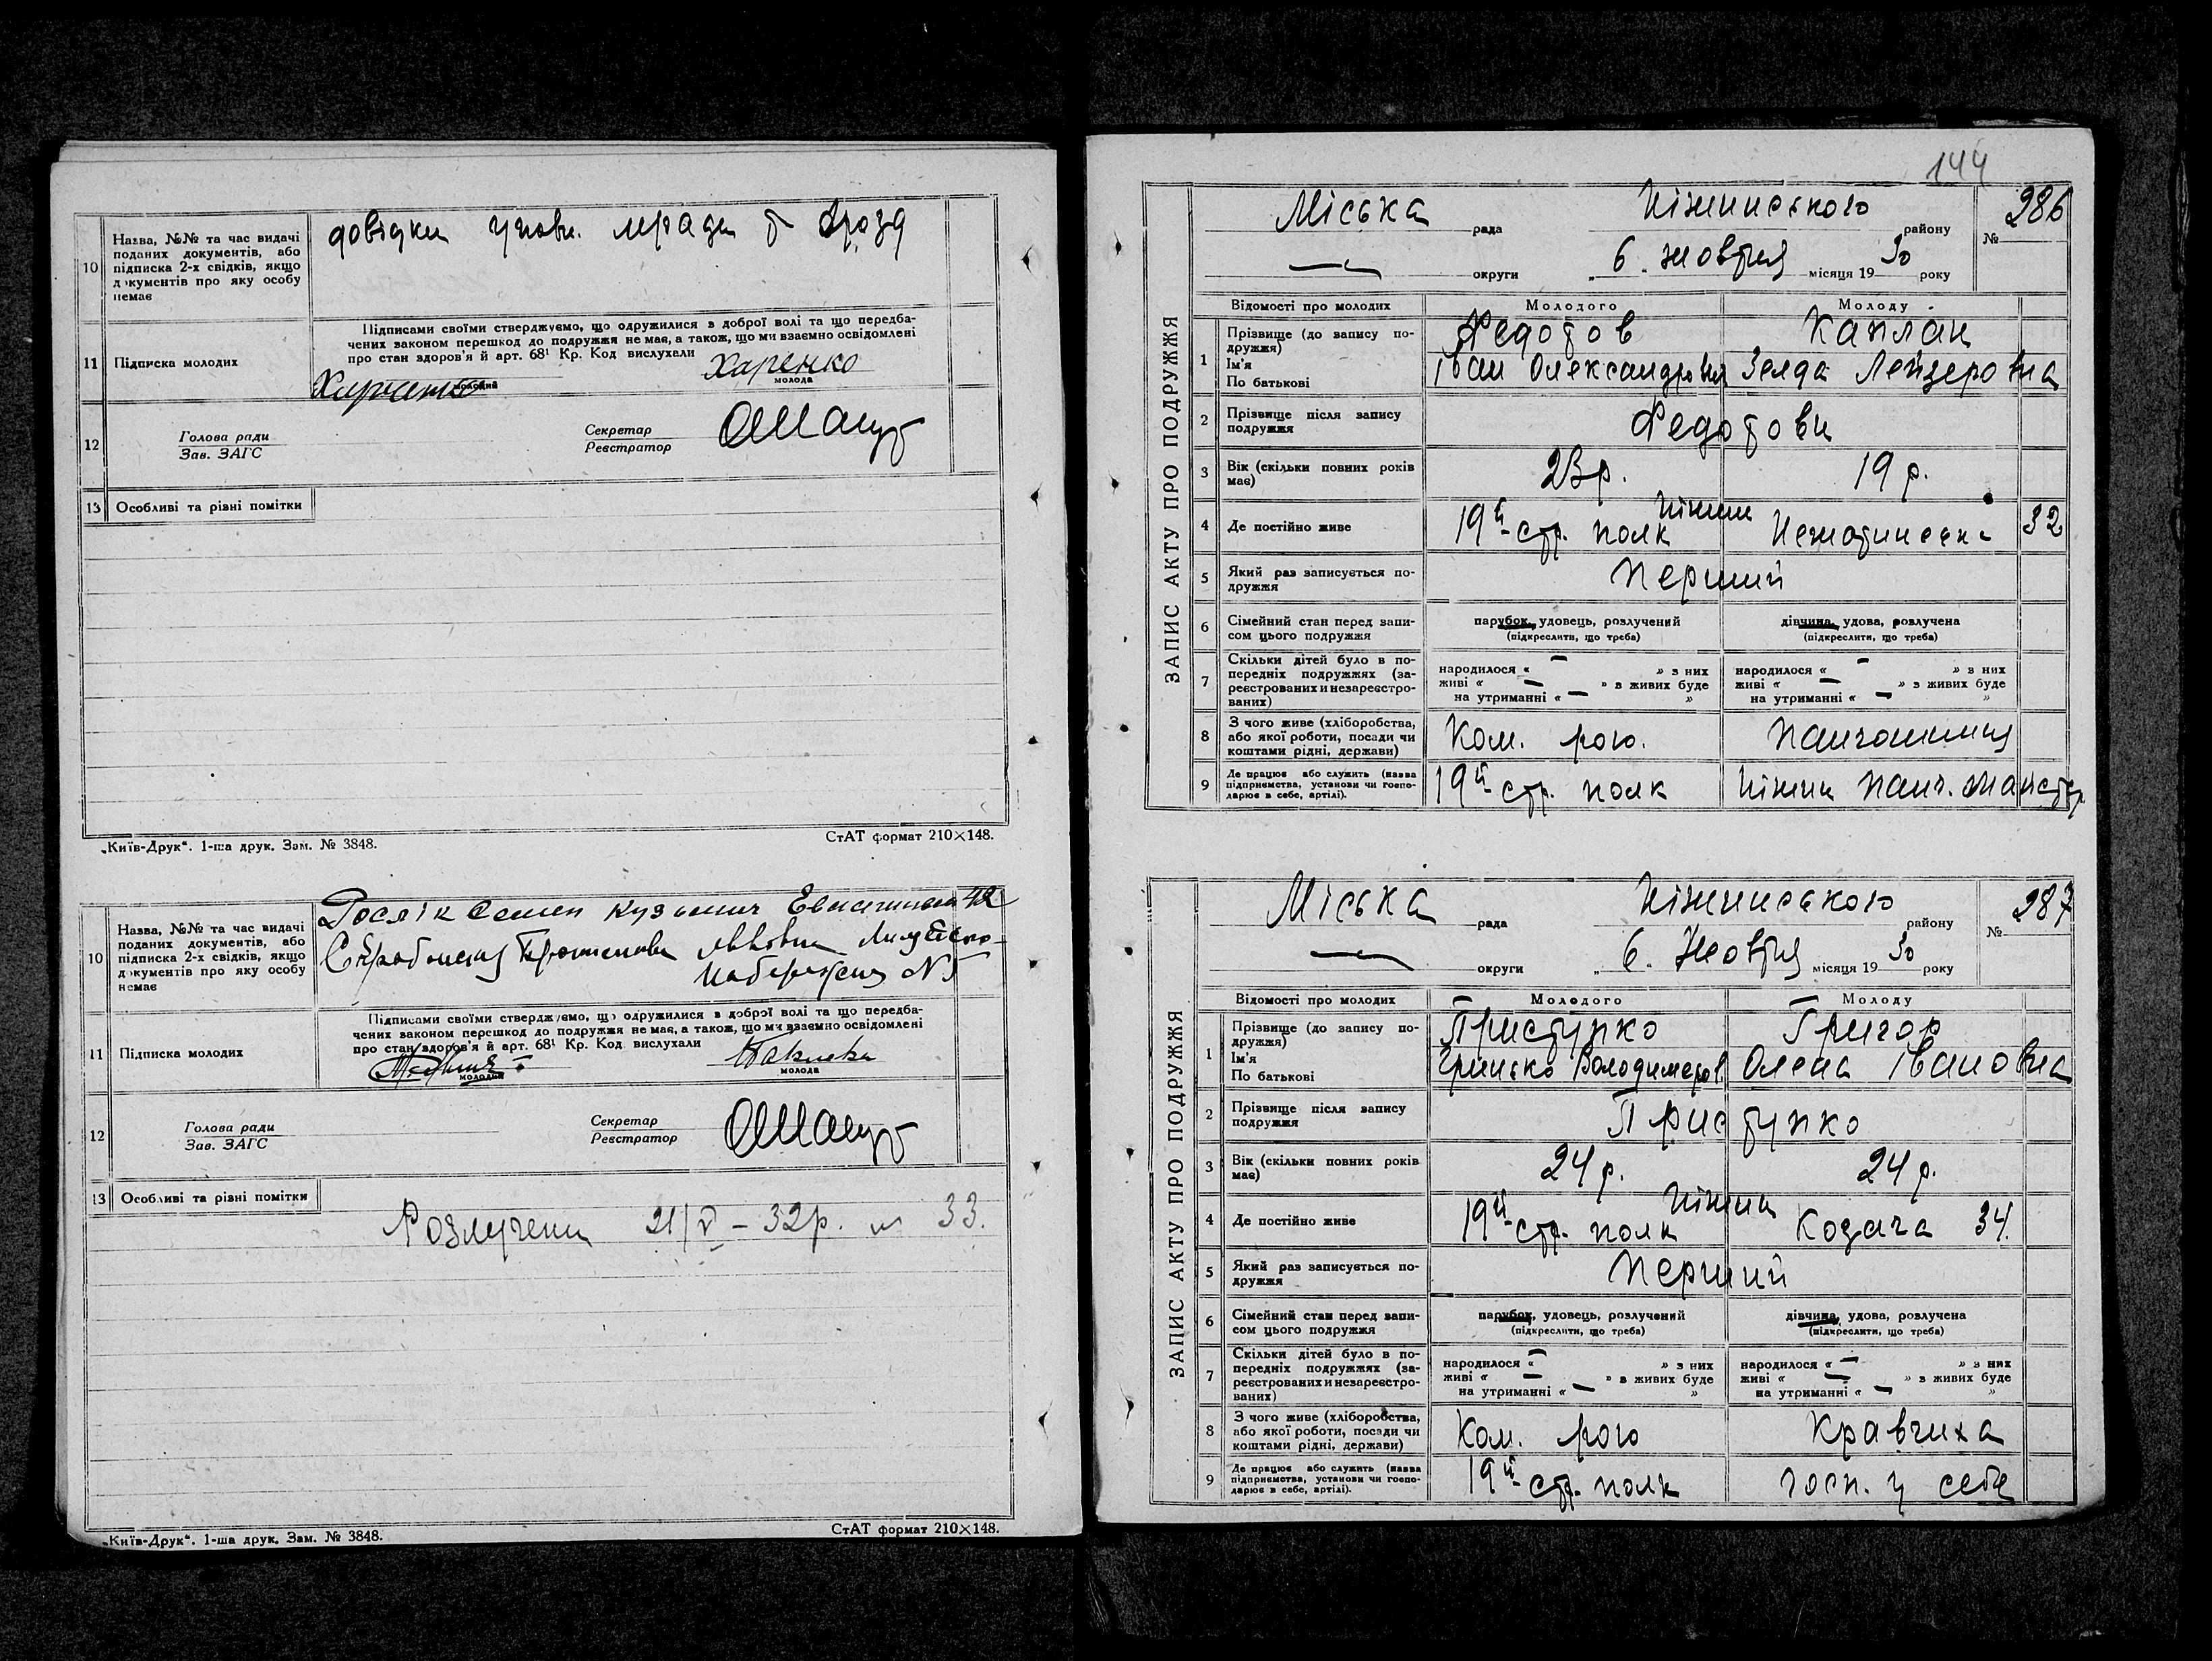 10 Назва, №№ та час видачі
поданих документів, або
підписка 2-х свідків, якщо
документів про яку особу
немає
довідки
11 Підписка молодих
Підписами своїми стверджуємо, що одружилися з доброї волі та що передба-
чених законом перешкод до подружжя немає, а також, що ми взаємно освідомлені
про стан здоров'я й арт. 68¹ Кр. Код вислухали
Харченко
молодий
Харенко
молода
12 Голова ради
Зав. ЗАГС
Секретар
Реєстратор
13 Особливі та різні помітки
„Київ-Друк“. 1-ша друк. Зам. № 3848.
СтАТ формат 210×148.
10 Назва, №№ та час видачі
поданих документів, або
підписка 2-х свідків, якщо
документів про яку особу
немає
Семен Кузьмич 42
Львовна
Набережна №5
11 Підписка молодих
Підписами своїми стверджуємо, що одружилися з доброї волі та що передба-
чених законом перешкод до подружжя немає, а також, що ми взаємно освідомлені
про стан здоров'я й арт. 68¹ Кр. Код вислухали
молодий
молода
12 Голова ради
Зав. ЗАГС
Секретар
Реєстратор
13 Особливі та різні помітки
Розлучени 21/V – 32р. № 33.
„Київ-Друк“. 1-ша друк. Зам. № 3848.
СтАТ формат 210×148.
144
ЗАПИС АКТУ ПРО ПОДРУЖЖЯ
Міська рада Ніжинського району № 286
округи „ 6. жовтня місяця 1930 року
Відомості про молодих Молодого Молоду
1 Прізвище (до запису по-
дружжя)
Ім'я
По батькові
Федотов Каплан
Іван Олександрович Зелда Лейзеровна
2 Прізвище після запису
подружжя
Федотови
3 Вік (скільки повних років
має)
23р. 19 р.
4 Де постійно живе
19й стр. полк Ніжин 32
5 Який раз записується по-
дружжя
Перший
6 Сімейний стан перед запи-
сом цього подружжя
парубок, удовець, розлучений
(підкреслити, що треба)
дівчина, удова, розлучена
(підкреслити, що треба)
7 Скільки дітей було в по-
передніх подружжях (за-
реєстрованих и незареєстро-
ваних)
народилося « – » з них
живі « – » в живих буде
на утриманні « – »
народилося « – » з них
живі « – » з живих буде
на утриманні « – »
8 З чого живе (хліборобства,
або якої роботи, посади чи
коштами рідні, держави)
Ком. рою. Панчошниця
9 Де працює або служить (назва
підприємства, установи чи госпо-
дарює в себе, артілі).
19й стр. полк Ніжин Панч. Майстер
ЗАПИС АКТУ ПРО ПОДРУЖЖЯ
Міська рада Ніжинського району № 287
округи „ 6. Жовтня місяця 1930 року
Відомості про молодих Молодого Молоду
1 Прізвище (до запису по-
дружжя)
Ім'я
По батькові
Приступко Григор
Гринько Володимеров Олена Івановна
2 Прізвище після запису
подружжя
Приступко
3 Вік (скільки повних років
має)
24 р. 24 р.
4 Де постійно живе
19й стр. полк Ніжин Козача 34.
5 Який раз записується по-
дружжя
Перший
6 Сімейний стан перед запи-
сом цього подружжя
парубок, удовець, розлучений
(підкреслити, що треба)
дівчина, удова, розлучена
(підкреслити, що треба)
7 Скільки дітей було в по-
передніх подружжях (за-
реєстрованих и незареєстро-
ваних)
народилося « – » з них
живі « – » в живих буде
на утриманні « – »
народилося « – » з них
живі « – » з живих буде
на утриманні « – »
8 З чого живе (хліборобства,
або якої роботи, посади чи
коштами рідні, держави)
Ком. рою Кравчиха
9 Де працює або служить (назва
підприємства, установи чи госпо-
дарює в себе, артілі).
19й стр. полк госп. у себе